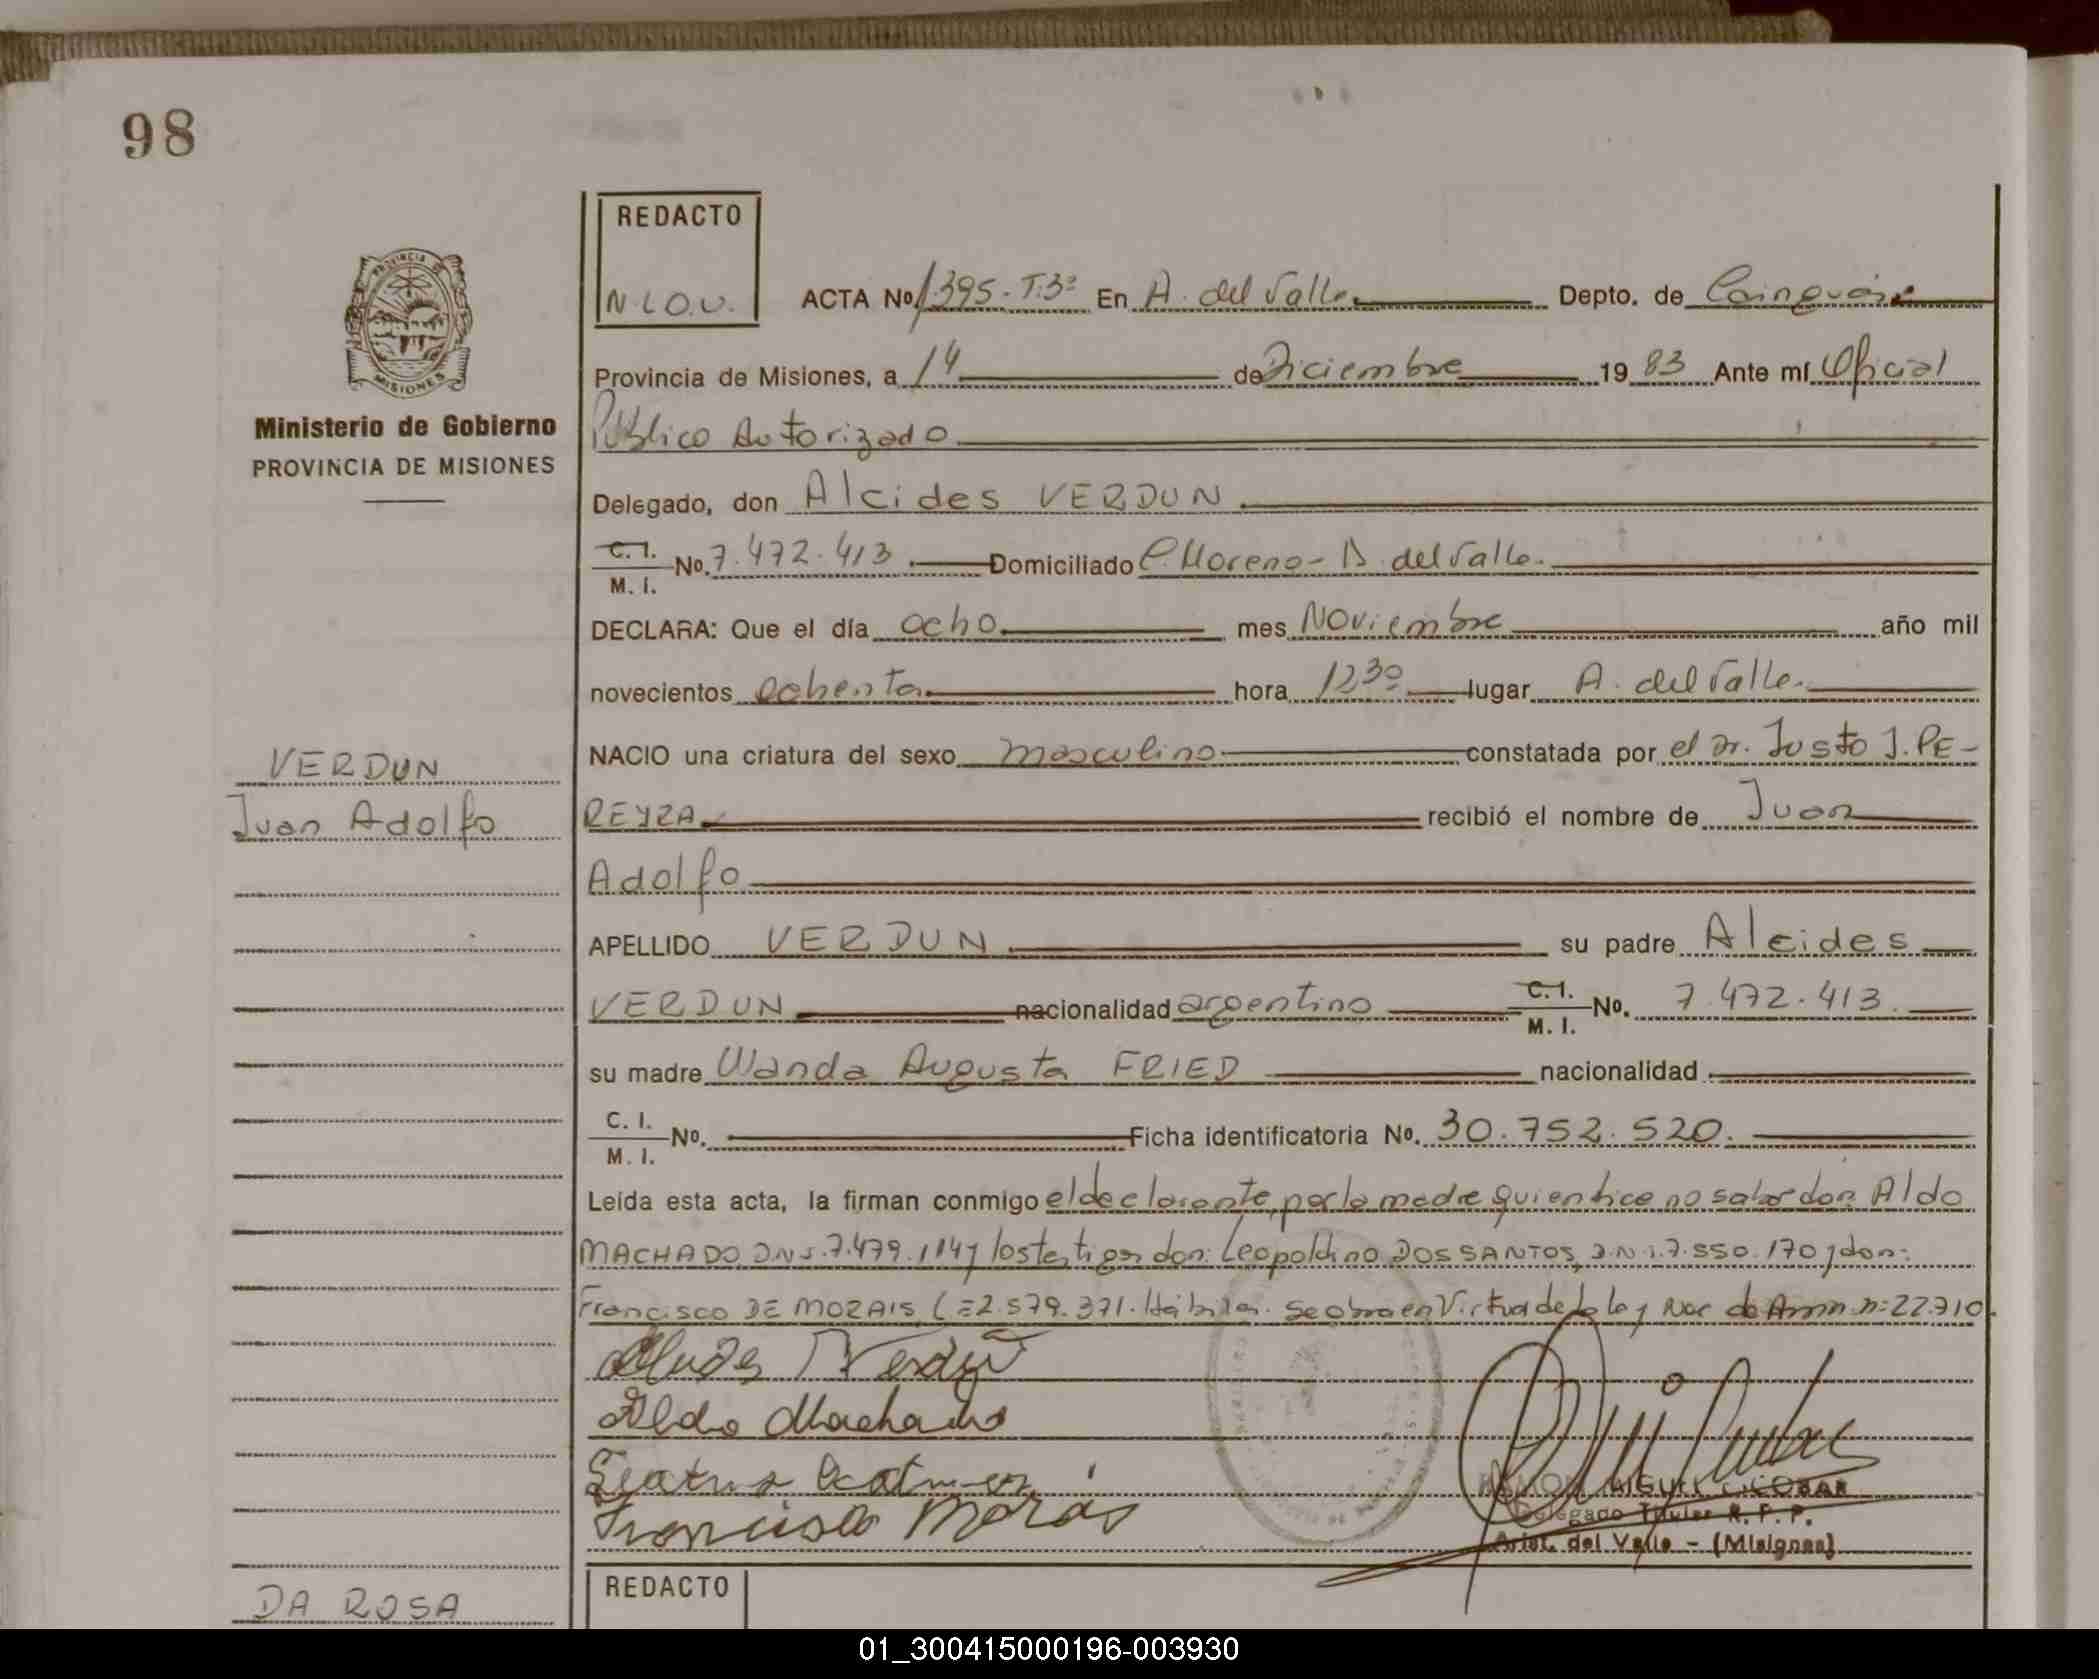 98
REDACTO
N.L.O.U.
PROVINCIA DE
MISIONES
Ministerio de Gobierno
PROVINCIA DE MISIONES
ACTA No 1.395-T.3º En A. del Valle Depto. de Cainguás
Provincia de Misiones, a 14 de Diciembre 19 83 Ante mí Oficial
Público Autorizado
Delegado, don Alcides VERDUN
C. I. / M. I. No. 7.472.413 Domiciliado P. Moreno - A. del Valle.
DECLARA: Que el día ocho mes Noviembre año mil
novecientos ochenta hora 1230 lugar A. del Valle.
NACIO una criatura del sexo masculino constatada por el Dr. Justo J. PE-
VERDUN
REYRA recibió el nombre de Juan
Juan Adolfo
Adolfo
APELLIDO VERDUN su padre Alcides
VERDUN nacionalidad argentino C. I. / M. I. No. 7.472.413
su madre Wanda Augusta FRIED nacionalidad
C. I. / M. I. No. Ficha identificatoria No. 30.752.520.
Leída esta acta, la firman conmigo el declarante, por la madre quien dice no saber don: Aldo
MACHADO DNI.7.479.114 y los testigos don: Leopoldino DOS SANTOS, DNI.7.550.170 y don:
Francisco DE MORAIS, LE 2.579.371. Hábiles. Se obra en Virtud de la ley Nac de Amn. nº 22.710.
Alcides Verdun
Aldo Machado
Francisco Morais
RAMON MIGUEL ESCOBAR
Delegado Titular R. P. P.
Arist. del Valle - (Misiones)
REDACTO
DA ROSA
01_300415000196-003930